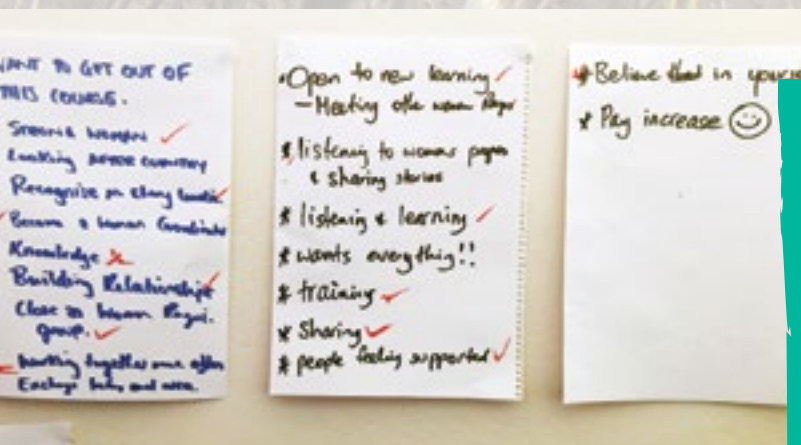 WANT TO GET OUT OF
THIS COURSE.
STRONG WOMAN
Looking AFTER COUNTRY
Recognise
Become a woman Coordinator
Knowledge
Building Relationships
Close
group.
working together more often
Exchange and
Open to new learning
- Meeting other women
* listening to womans
& sharing stories
* listening & learning
* wants everything!!
* training
* Sharing
* people feeling supported
* Believe in
* Pay increase